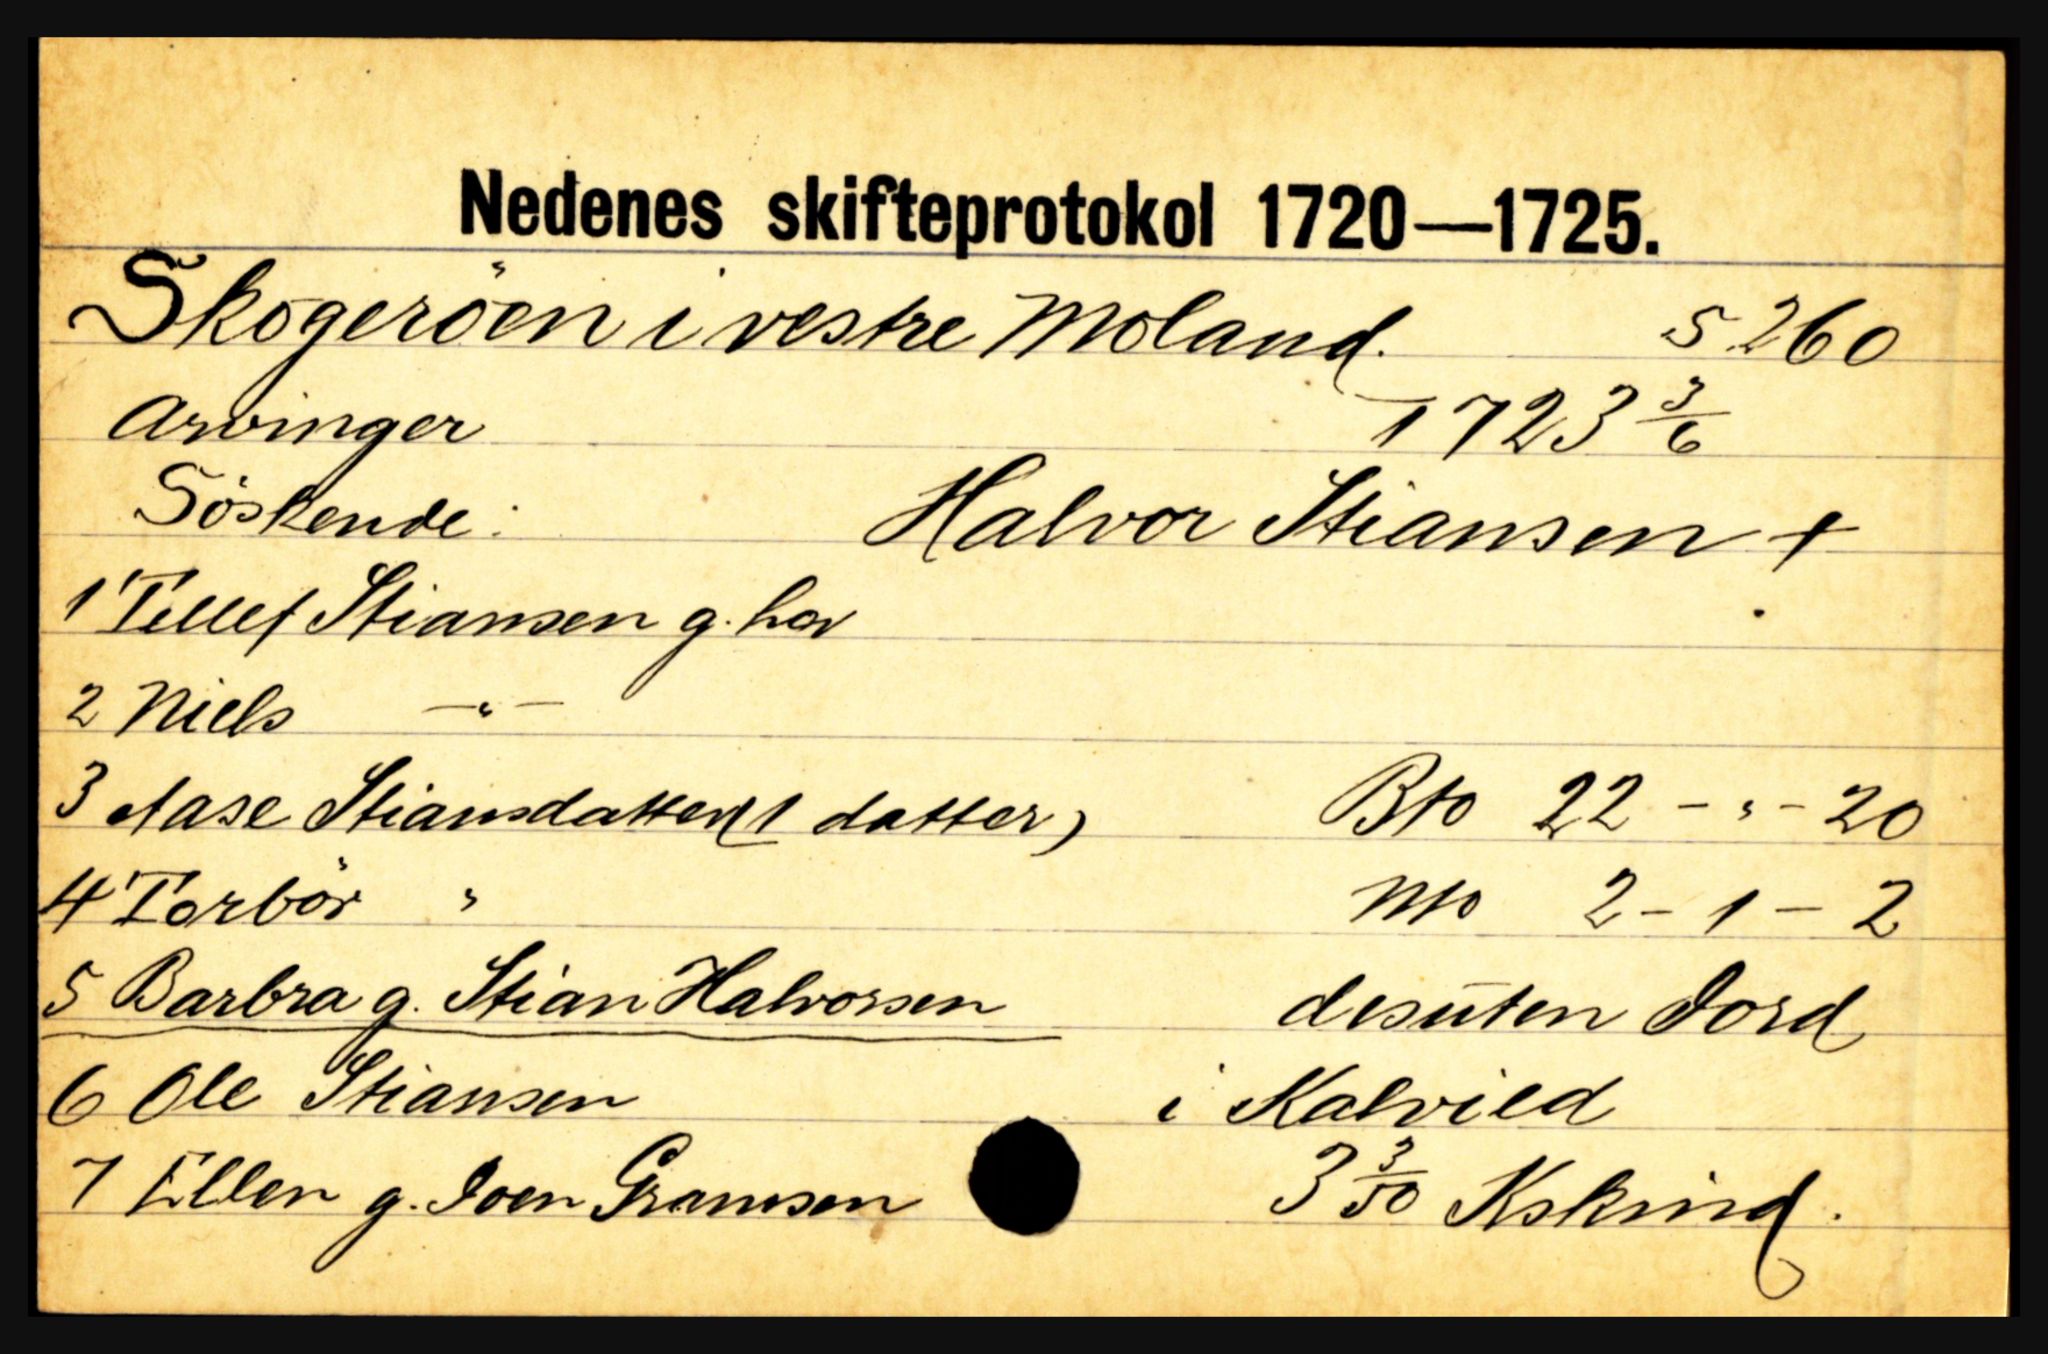 Nedenes skifteprotokol 1720—1725.
Skogeröen i vestre Moland. S 260
Arvinger 1723 3/6
Söskende: Halvor Stiansen +
1 Tellef Stiansen g. hav
2 Niels —"—
3 Aase Stiansdatter (1 datter) Bto 22 - " - 20
4 Torbör " Nto 2 - 1 - 2
5 Barbra g. Stian Halvorsen desuten Jord
6 Ole Stiansen i Kalvild
7 Ellen g. Joen Gramsen 3 3/50 Kskind.